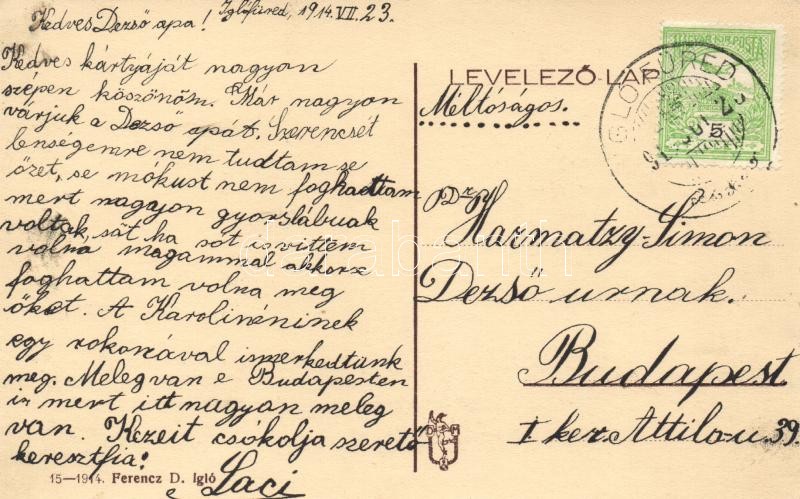 Kedves Dezső apa! Iglófüred, 1914.VII.23.
Kedves kártyáját nagyon
szépen köszönöm. Már nagyon
várjuk a Dezső apát. Szerencsét
lenségemre nem tudtam se
őzet, se mókust nem foghattam
mert nagyon gyorslábuak
voltak, sőt ha sót is vittem
volna magammal akkor se
foghattam volna meg
őket. A Karolinéninek
egy rokonával ismerkedtünk
meg. Meleg van e Budapesten
is mert itt nagyon meleg
van. Kezeit csókolja szerető
keresztfia:
Laci
15—1914. Ferencz D. Igló
LEVELEZŐ-LAP
Méltóságos.
Dr
Harmatzy-Simon
Dezső urnak.
Budapest
I ker. Attila-u. 39.
MAGYAR KIR. POSTA
IGLÓFÜRED
5